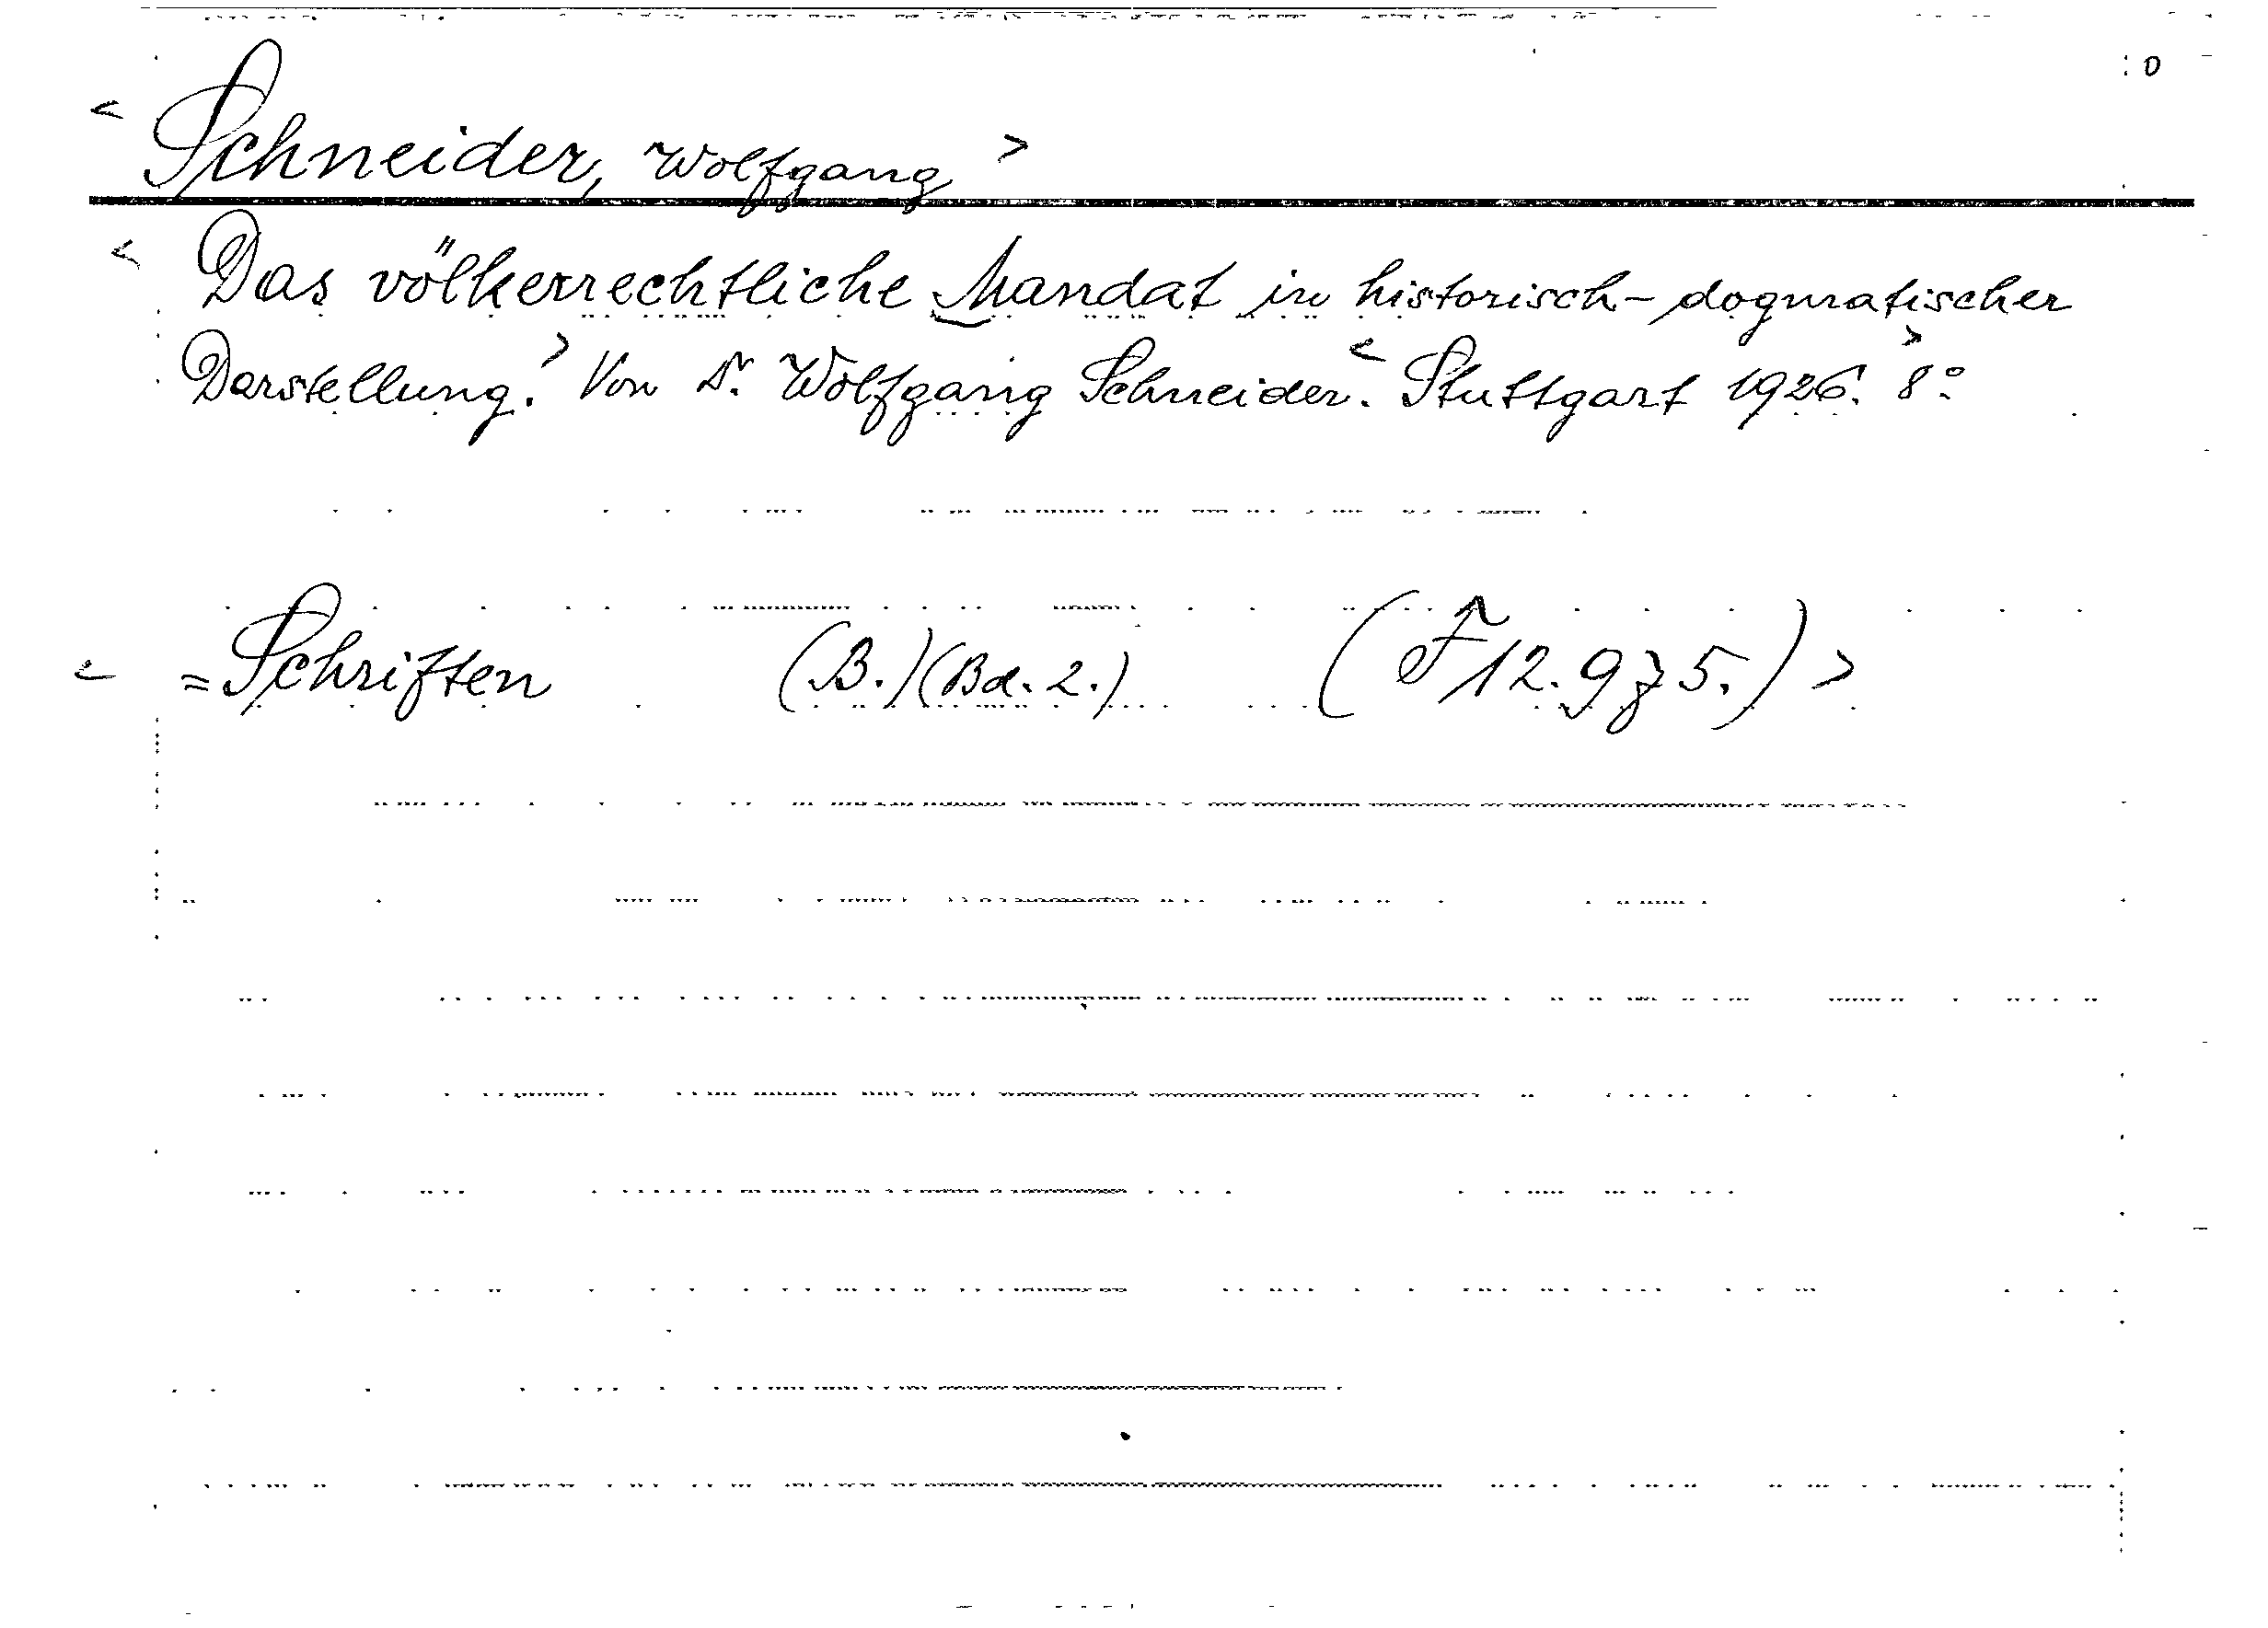 0
< Schneider, Wolfgang >
< Das völkerrechtliche Mandat in historisch-dogmatischer
Darstellung.> Von Dr. Wolfgang Schneider. < Stuttgart 1926.> 8°
< =Schriften (B.)(Bd. 2.) (F12.975.) >